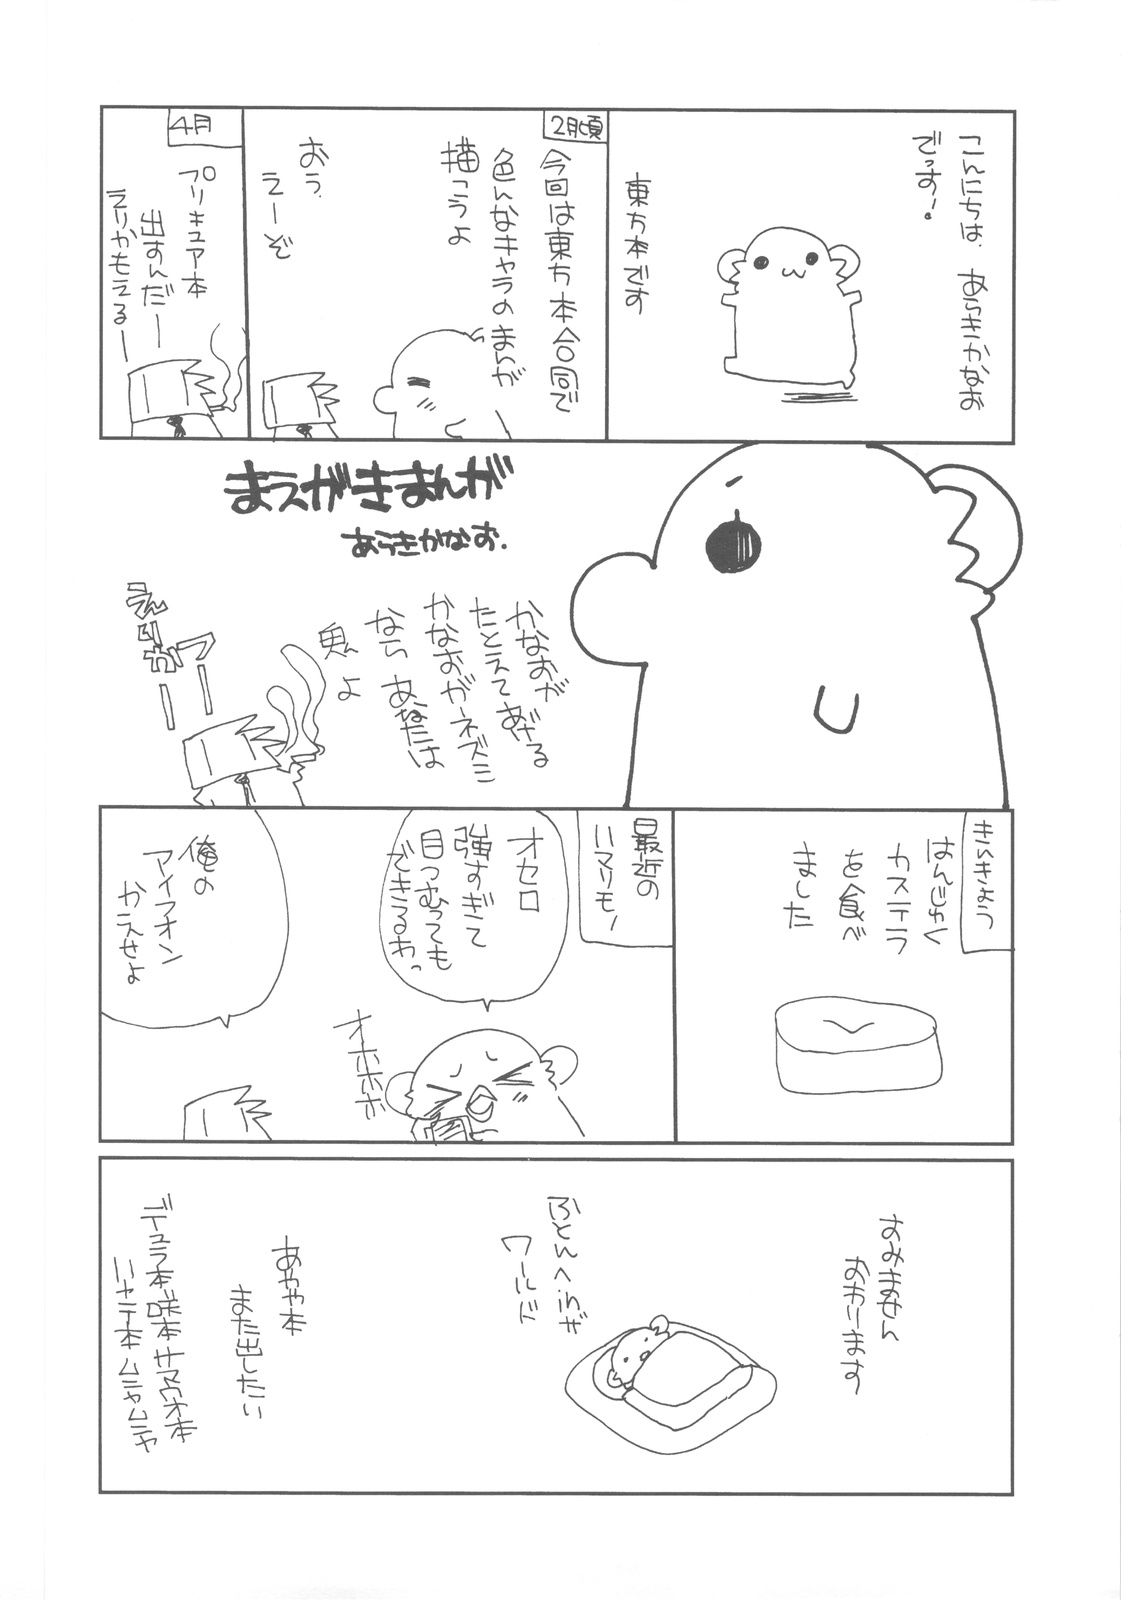 こんにちは、あらきかなお
でっす!
東方本です
2月頃
今回は東方本合同で
色んなキャラのまんが
描こうよ
おう、
えーぞ
4月
プリキュア本
出すんだー
えりかもえるー
まえがきまんが
あらきかなお.
かなおが
たとえてあげる
かなおがネズミ
なら あなたは
魚よ
えりかー
つー
きんきょう
はんじゅく
カステラ
を食べ
ました
最近の
ハマリモノ
オセロ
強すぎて
目つむっても
できるわっ
オホホホホ
俺の
アイフォン
かえせよ
すみません
おわります
ふとんへinザ
ワールド
あやや本
また出したい
デュラ本 咲本 サマウオ本
ハヤテ本 ムニャムニャ